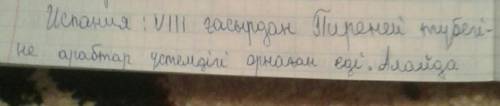 Испания: VIII ғасырдан Пиреней түбегі-
не арабтар үстемдігі орнаған еді. Алайда